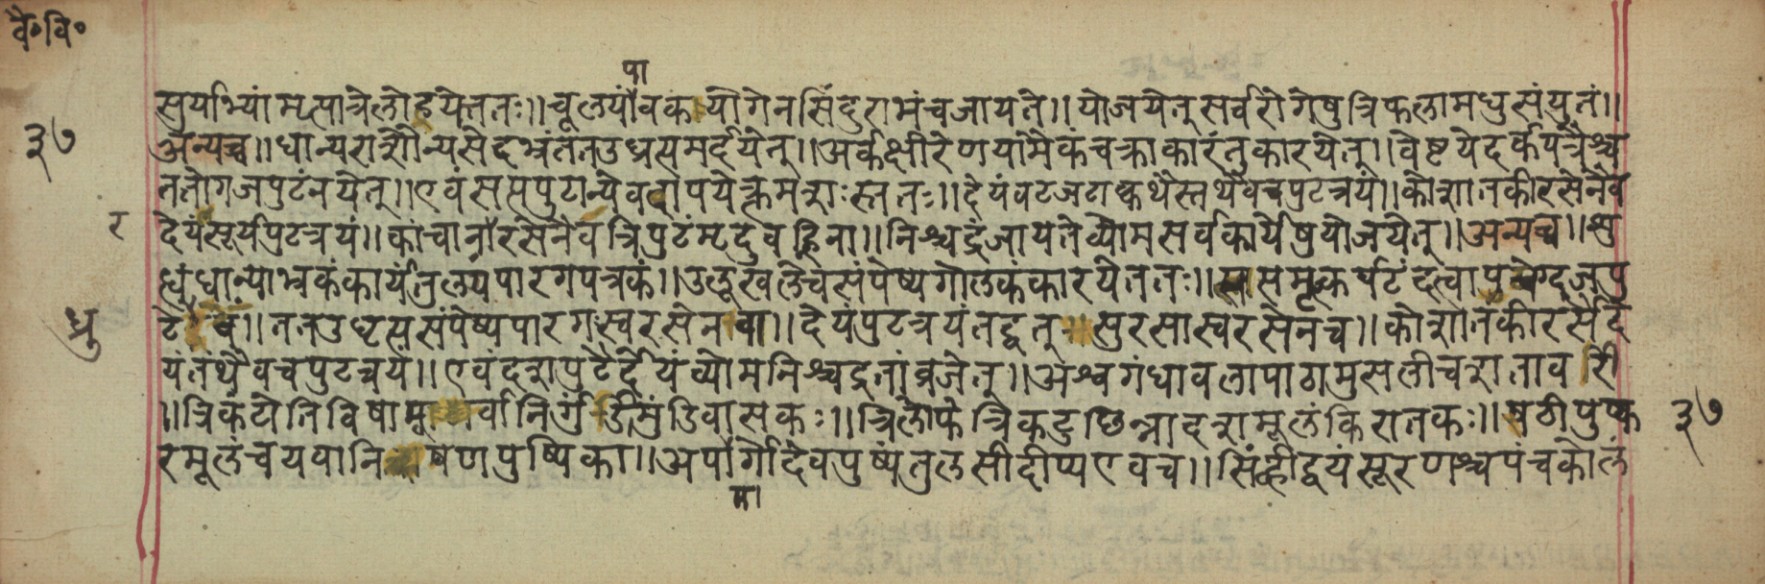 वै॰वि॰
पा
सुर्याभ्यां मृत्पात्रे लोहयेत्ततः॥ चूलयां वकयोगेन सिंदुराभं च जायते॥ योजयेत् सर्वरोगेषु त्रिफलामधुसंयुतं॥
३७
अन्यच्च॥ धान्यराशौ न्यसेदभ्रं तत उध्रत्य मर्दयेत्॥ अर्कक्षीरेण यामैकं चक्राकारं तु कारयेत्॥ वेष्टयेदर्कपत्रैश्च
ततो गजपुटं नयेत्॥ एवं सप्तपुटान्येव दापयेत्क्रमशस्ततः॥ देयं वटजटाक्वाथैस्तथैव च पुटत्रयं॥ कोशातकीरसेनैव
र
देयं सूर्यपुटत्रयं॥ कांचानारसेनैव त्रिपुटं मृदुवह्निना॥ निश्चंद्रं जायते व्योम सर्वकार्येषु योजयेत्॥ अन्यच्च॥ शु
द्धं धान्याभ्रकं कार्यं पारगपत्रकं॥ उलूखले च संपेष्य गोलकं कारयेत्ततः॥ कर्पटं दत्वा
ध्रु
टे तत उधृत्य संपेष्य पारगस्वरसेन वा॥ देयं पुटत्रयं तद्वत् सुरसास्वरसेन च॥ कोशातकीरसैर्दे
यं तथैव च पुटत्रयं॥ एवं दशपुटैर्देयं व्योम निश्चंद्रतां व्रजेत्॥ अश्वगंधा वला पाठा मुसली च शतावरी
॥त्रिकंटोतिविषा निर्गुंडी मुंडि वासकः॥ त्रिकटु छिन्ना दशमूलं किरातकः॥ षठी पुष्क
३७
रमूलं च यवानि पुष्पिका॥ अर्पागों देवपुष्यं तुलसी दीप्य एव च॥ सिंहीद्वयं सूरणश्च पंचकोलं
मा